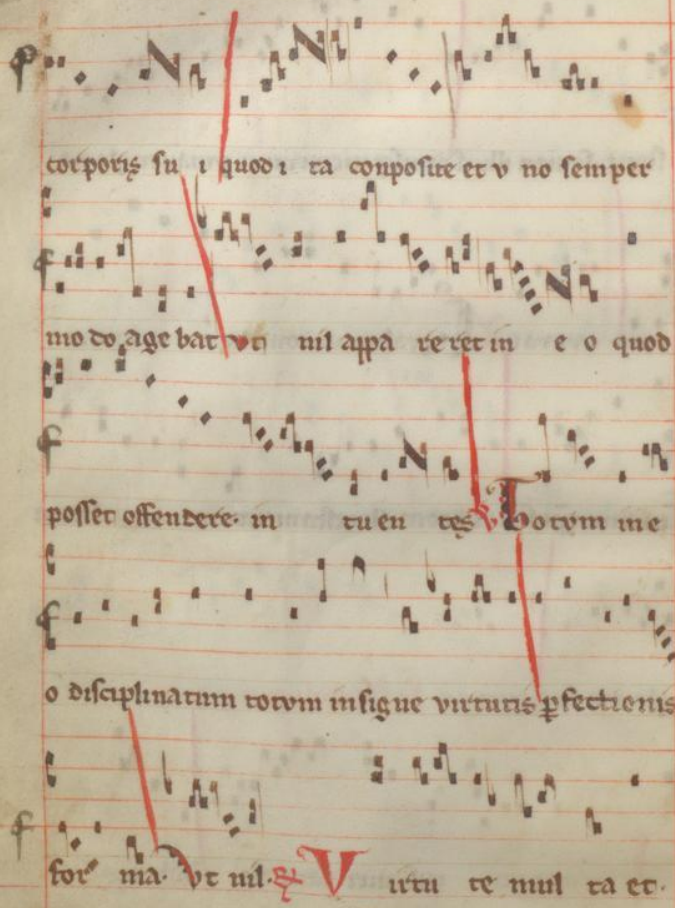 corporis su i quod i ta conposite et v no semper
mo do age bat vt nil appa reret in e o quod
posset offendere. in tuen tes V Totvm in e
o disciplinatum totvm insigne virtutis pfectionis
for ma. Vt nil. V irtu te mul ta et.